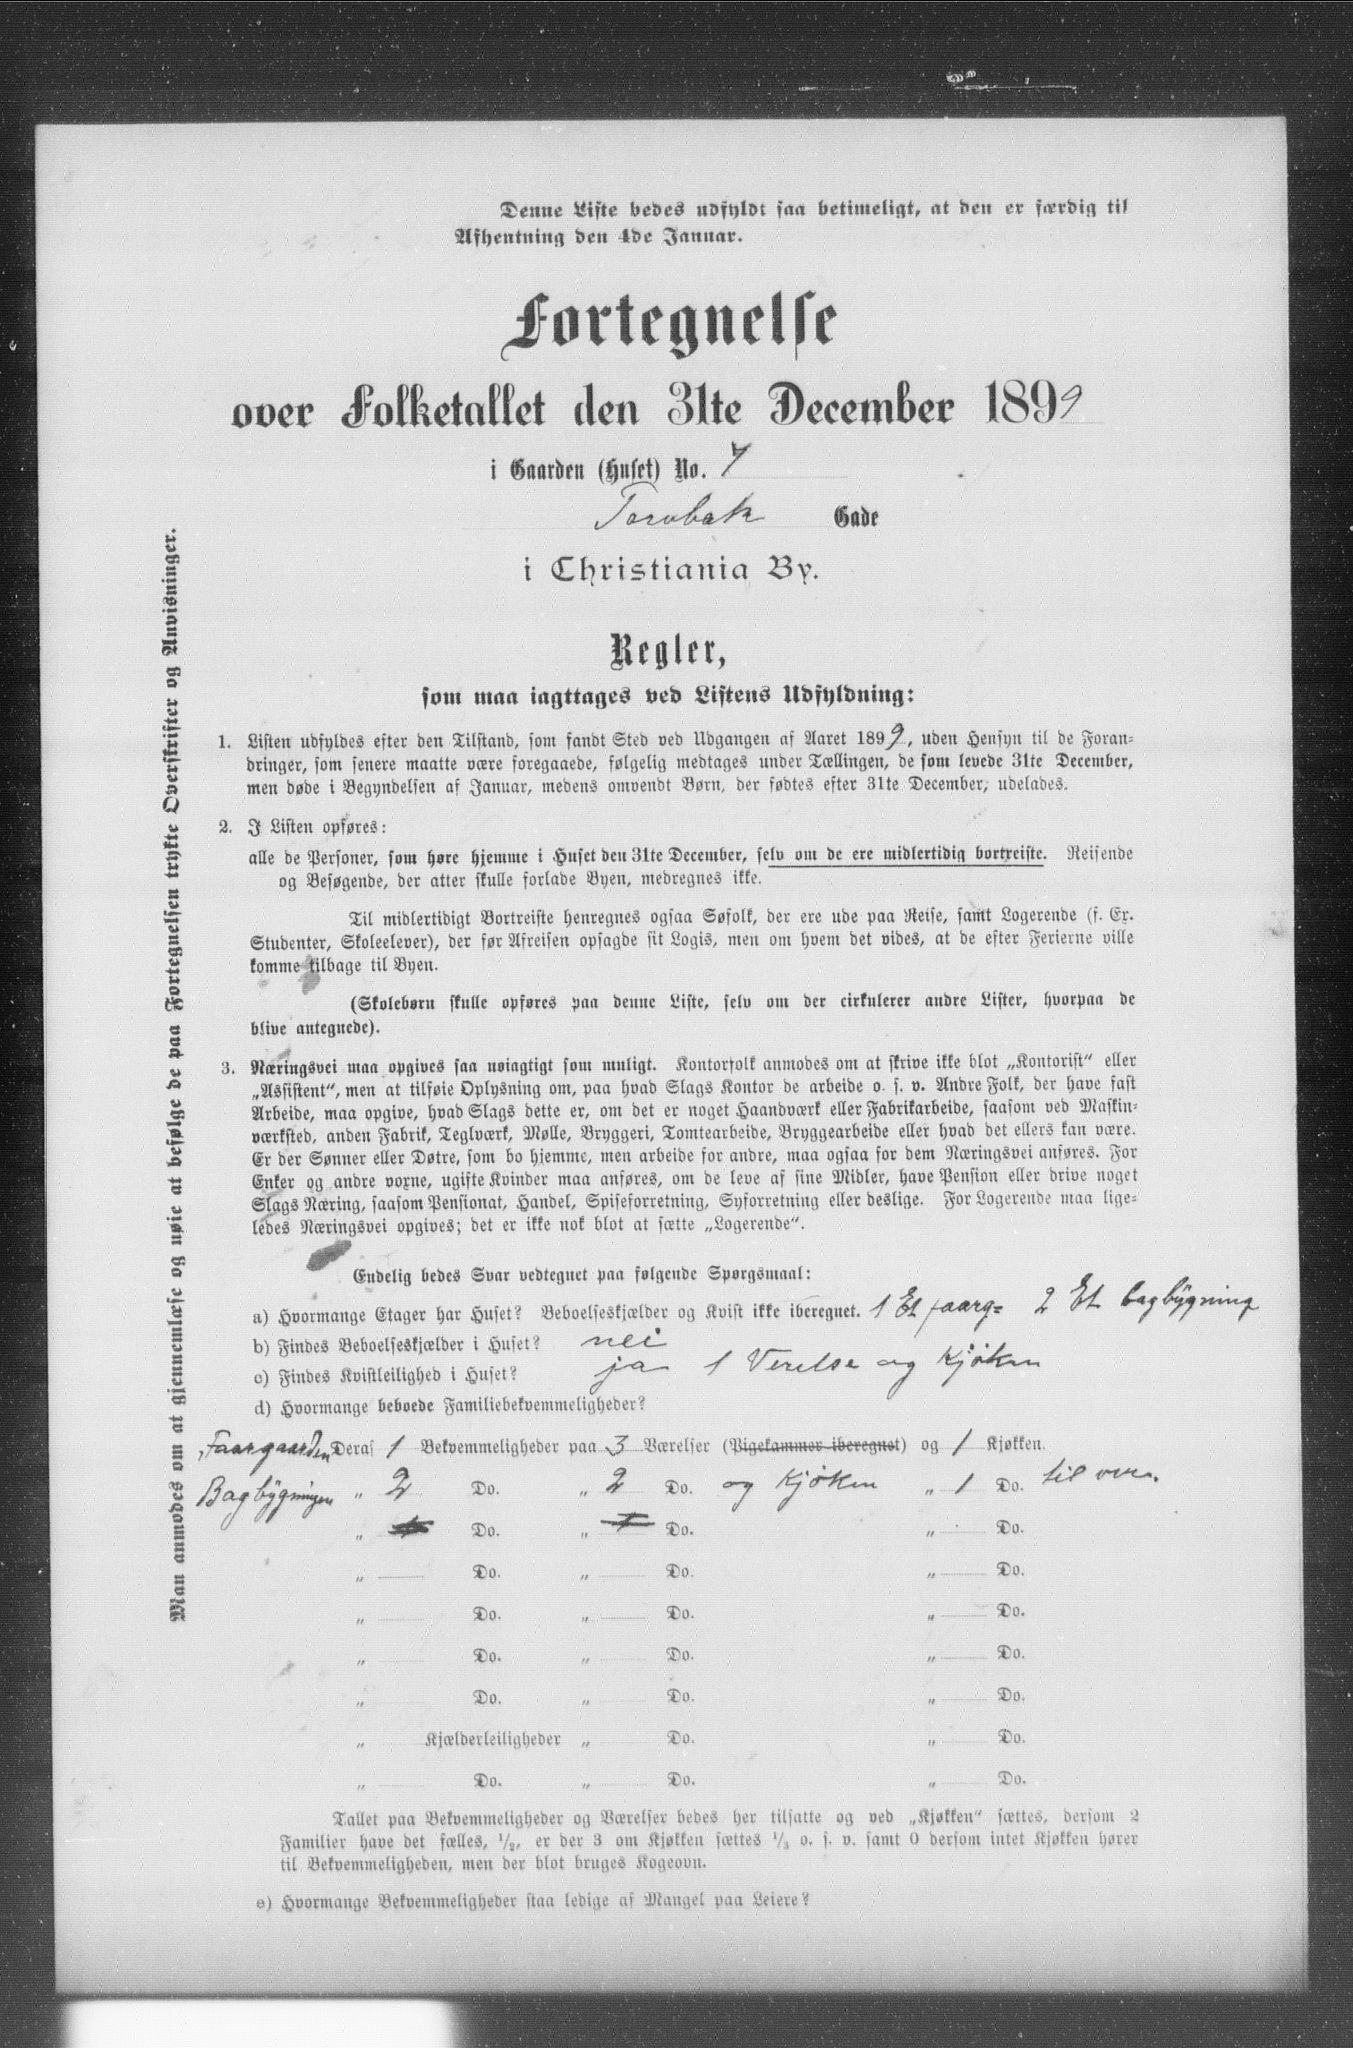 Denne Liste bedes udfyldt saa betimeligt, at den er færdig til
Afhentning den 4de Januar.
Fortegnelse
over Folketallet den 31te December 1899
i Gaarden (Huset) No. 7
Torvbak Gade
i Christiania By.
Regler,
som maa iagttages ved Listens Udfyldning:
1. Listen udfyldes efter den Tilstand, som fandt Sted ved Udgangen af Aaret 1899, uden Hensyn til de Foran-
dringer, som senere maatte være foregaaede, følgelig medtages under Tællingen, de som levede 31te December,
men døde i Begyndelsen af Januar, medens omvendt Børn, der fødtes efter 31te December, udelades.
2. I Listen opføres:
alle de Personer, som høre hjemme i Huset den 31te December, selv om de ere midlertidig bortreiste. Reisende
og Besøgende, der atter skulle forlade Byen, medregnes ikke.
Til midlertidigt Bortreiste henregnes ogsaa Søfolk, der ere ude paa Reise, samt Logerende (f. Ex.
Studenter, Skoleelever), der før Afreisen opsagde sit Logis, men om hvem det vides, at de efter Ferierne ville
komme tilbage til Byen.
(Skolebørn skulle opføres paa denne Liste, selv om der cirkulerer andre Lister, hvorpaa de
blive antegnede).
3. Næringsvei maa opgives saa nøiagtigt som muligt. Kontorfolk anmodes om at skrive ikke blot „Kontorist“ eller
„Assistent“, men at tilføie Oplysning om, paa hvad Slags Kontor de arbeide o. s. v. Andre Folk, der have fast
Arbeide, maa opgive, hvad Slags dette er, om det er noget Haandværk eller Fabrikarbeide, saasom ved Maskin-
værksted, anden Fabrik, Teglværk, Mølle, Bryggeri, Tomtearbeide, Bryggearbeide eller hvad det ellers kan være.
Er der Sønner eller Døtre, som bo hjemme, men arbeide for andre, maa ogsaa for dem Næringsvei anføres. For
Enker og andre voxne, ugifte Kvinder maa anføres, om de leve af sine Midler, have Pension eller drive noget
Slags Næring, saasom Pensionat, Handel, Spiseforretning, Syforretning eller deslige. For Logerende maa lige-
ledes Næringsvei opgives; det er ikke nok blot at sætte „Logerende“.
Endelig bedes Svar vedtegnet paa følgende Spørgsmaal:
a) Hvormange Etager har Huset? Beboelseskjælder og Kvist ikke iberegnet. 1 Et faarg= 2 Et bagbygning
b) Findes Beboelseskjælder i Huset? nei
c) Findes Kvistleilighed i Huset? ja 1 Verelse og Kjøken
d) Hvormange beboede Familiebekvemmeligheder?
Faargaarden Deraf 1 Bekvemmeligheder paa 3 Værelser (Pigekammer iberegnet) og 1 Kjøkken.
Bagbygningen „ 2 Do. „ 2 Do. og Kjøken „ 1 Do. til
„ 1 Do. „ 1 Do. „ Do.
„ Do. „ Do. „ Do.
„ Do. „ Do. „ Do.
„ Do. „ Do. „ Do.
„ Do. „ Do. „ Do.
„ Kjælderleiligheder „ Do. „ Do.
„ Do. „ Do. „ Do.
Tallet paa Bekvemmeligheder og Værelser bedes her tilsatte og ved „Kjøkken“ sættes, dersom 2
Familier have det fælles, 1/2, er der 3 om Kjøkken sættes 1/3 o. s. v. samt 0 dersom intet Kjøkken hører
til Bekvemmeligheden, men der blot bruges Kogeovn.
e) Hvormange Bekvemmeligheder staa ledige af Mangel paa Leiere?
Man anmodes om at gjennemlæse og nøie at befølge de paa Fortegnelsen trykte Overskrifter og Anvisninger.